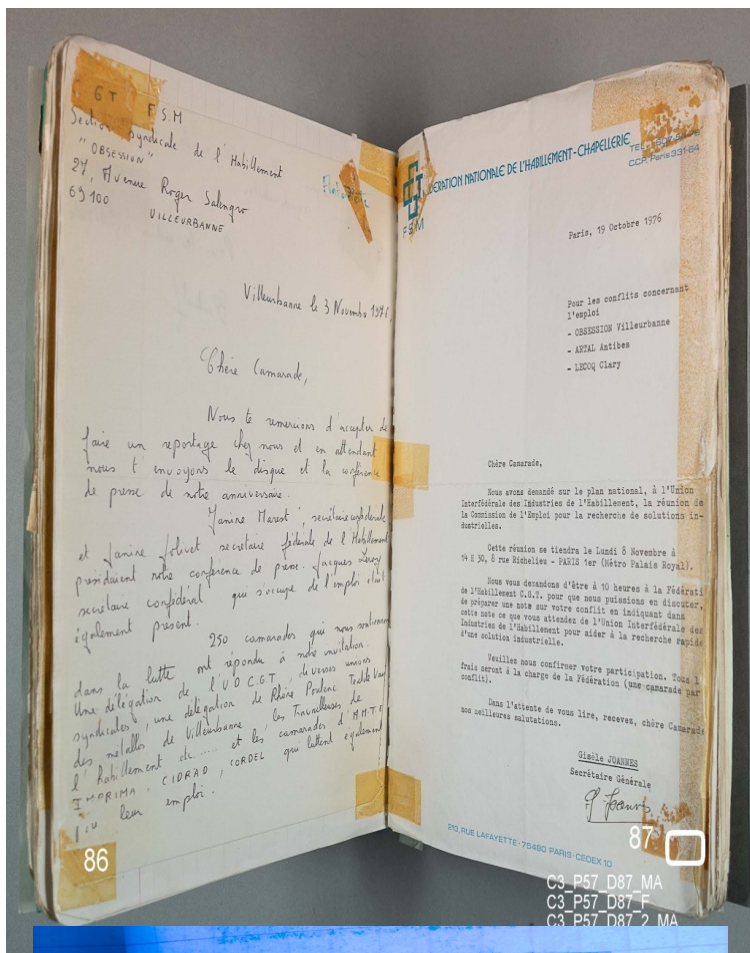 C G T F.S.M
Section Syndicale de l'Habillement
"OBSESSION"
27, Avenue Roger Salengro
69100
VILLEURBANNE
Villeurbanne le 3 Novembre 1976
Chère Camarade,
Nous te remercions d'accepter de
faire un reportage chez nous et en attendant
nous t'envoyons le disque et la conférence
de presse de notre anniversaire.
Janine Marest, secrétaire confédérale
et Janine Jolivet secrétaire fédérale de l'Habillement
présidaient notre conférence de presse. Jacques
secrétaire confédéral qui s'occupe de l'emploi était
également présent.
250 camarades qui nous soutiennent
dans la lutte ont répondu à notre invitation.
Une délégation de l'U D C.G.T, diverses unions
syndicales, une délégation de Rhône Poulenc Textile Vaise
des métallos de Villeurbanne, les Travailleuses de
l'habillement etc..... et les camarades d'A.M.T.E
IMPRIMA. CIDRAD, CORDEL qui luttent également
pour leur emploi.
86
FEDERATION NATIONALE DE L'HABILLEMENT-CHAPELLERIE
C.C.P. Paris 331-64
FSM
Paris, 19 Octobre 1976
Pour les conflits concernant
l'emploi
- OBSESSION Villeurbanne
- ARTAL Antibes
- LECOQ Clary
Chère Camarade,
Nous avons demandé sur le plan national, à l'Union
Interfédérale des Industries de l'Habillement, la réunion de
la Commission de l'Emploi pour la recherche de solutions in-
dustrielles.
Cette réunion se tiendra le Lundi 8 Novembre à
14 H 30, 8 rue Richelieu - PARIS 1er (Métro Palais Royal).
Nous vous demandons d'être à 10 heures à la Fédérati
de l'Habillement C.G.T. pour que nous puissions en discuter,
de préparer une note sur votre conflit en indiquant dans
cette note ce que vous attendez de l'Union Interfédérale des
Industries de l'Habillement pour aider à la recherche rapide
d'une solution industrielle.
Veuillez nous confirmer votre participation. Tous l
frais seront à la charge de la Fédération (une camarade par
conflit).
Dans l'attente de vous lire, recevez, chère Camarade
nos meilleures salutations.
Gisèle JOANNES
Secrétaire Générale
G Joannès
213, RUE LAFAYETTE - 75480 PARIS - CEDEX 10
87
C3_P57_D87_MA
C3_P57_D87_F
C3_P57_D87_2_MA